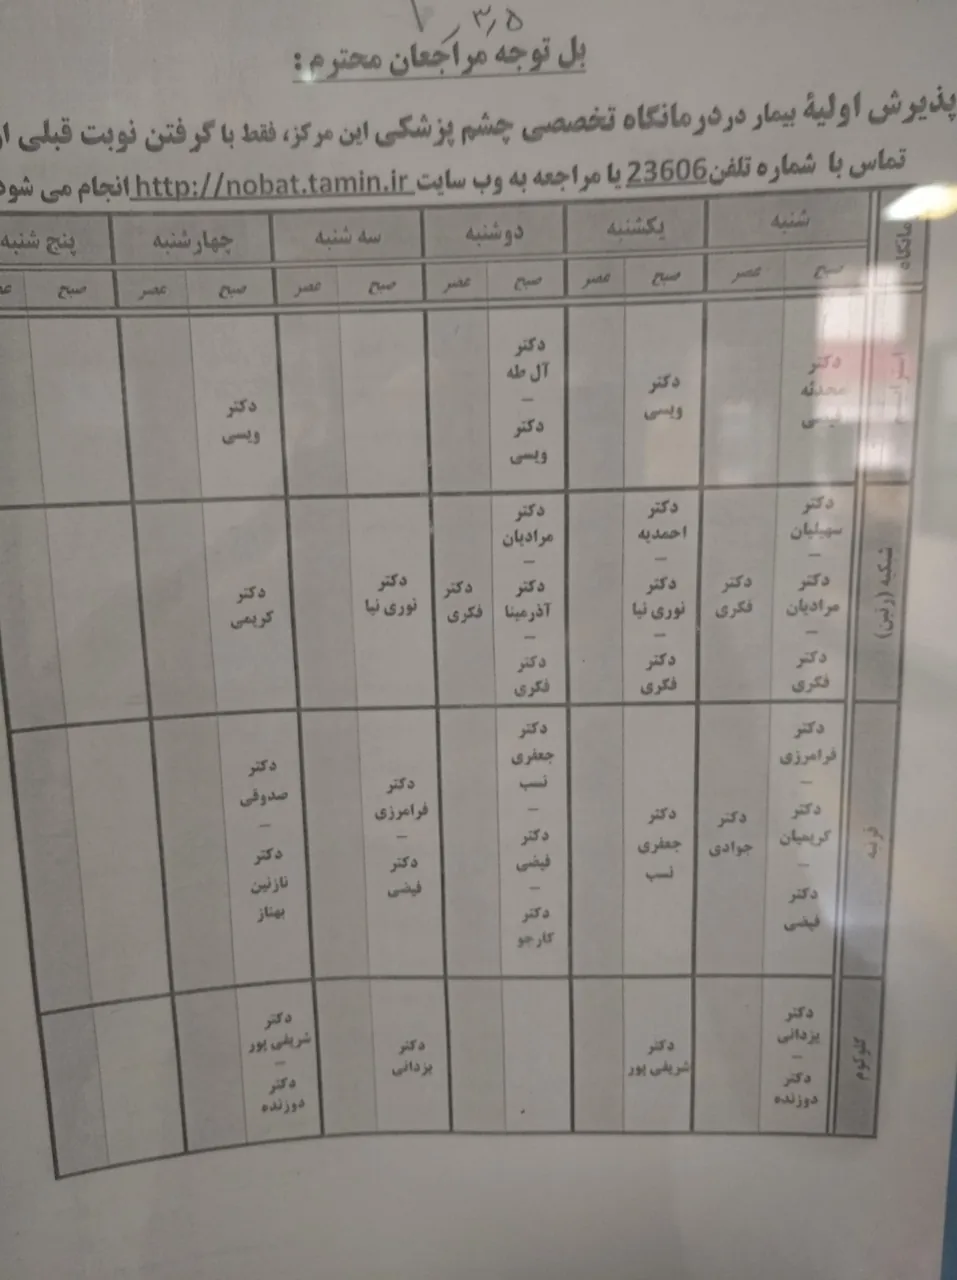 ۳٫۵
بل توجه مراجعان محترم :
پذیرش اولیۀ بیمار در درمانگاه تخصصی چشم پزشکی این مرکز، فقط با گرفتن نوبت قبلی از
تماس با شماره تلفن 23606 یا مراجعه به وب سایت http://nobat.tamin.ir انجام می شود
شنبه یکشنبه دوشنبه سه شنبه چهارشنبه پنج شنبه
صبح عصر صبح عصر صبح عصر صبح عصر صبح عصر صبح
دکتر
محدثه
دکتر
ویسی
دکتر
آل طه
–
دکتر
ویسی
دکتر
ویسی
شبکیه (رتین)
دکتر
سهیلیان
–
دکتر
مرادیان
–
دکتر
فکری
دکتر
فکری
دکتر
احمدیه
–
دکتر
نوری نیا
–
دکتر
فکری
دکتر
مرادیان
–
دکتر
آذرمینا
–
دکتر
فکری
دکتر
فکری
دکتر
نوری نیا
دکتر
کریمی
قرنیه
دکتر
فرامرزی
–
دکتر
کریمیان
–
دکتر
فیضی
دکتر
جوادی
دکتر
جعفری
نسب
دکتر
جعفری
نسب
–
دکتر
فیضی
–
دکتر
کارجو
دکتر
فرامرزی
–
دکتر
فیضی
دکتر
صدوقی
–
دکتر
نازنین
بهناز
گلوکوم
دکتر
یزدانی
–
دکتر
دوزنده
دکتر
شریفی پور
دکتر
یزدانی
دکتر
شریفی پور
–
دکتر
دوزنده